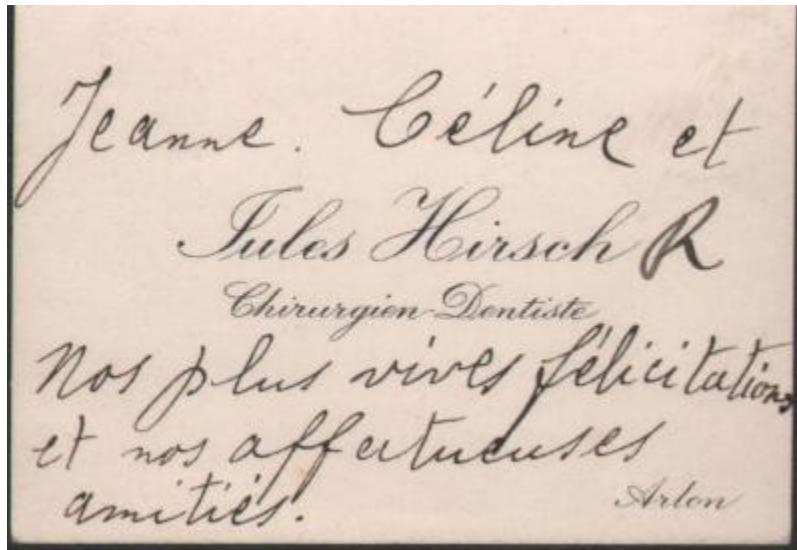 Jeanne. Céline et
Jules Hirsch R
Chirurgien-Dentiste
Nos plus vives félicitations
et nos affectueuses
amitiés.
Arlon